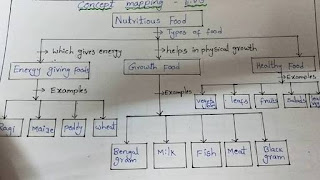 Concept mapping -
Nutritious Food
Types of food
which gives energy
helps in physical growth
Energy giving foods
Growth Food
Healthy Food
Examples
Examples
Examples
Ragi
Maize
peddy
wheat
leafs
fruits
Bengal gram
Milk
Fish
Meat
Black gram